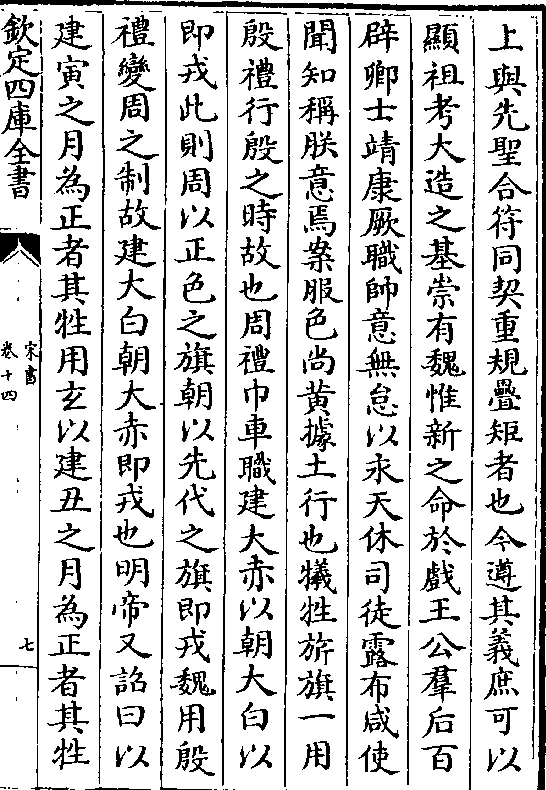 上與先聖合符同契重規疊矩者也今遵其義庶可以
顯祖考大造之基崇有魏惟新之命於戲王公羣后百
辟卿士靖康厥職帥意無怠以永天休司徒露布咸使
聞知稱朕意焉案服色尚黄據土行也犧牲旂旗一用
殷禮行殷之時故也周禮巾車職建大赤以朝大白以
即戎此則周以正色之旗朝以先代之旗即戎魏用殷
禮變周之制故建大白朝大赤即戎也明帝又詔曰以
建寅之月為正者其牲用玄以建丑之月為正者其牲
欽定四庫全書
宋書
卷十四
七